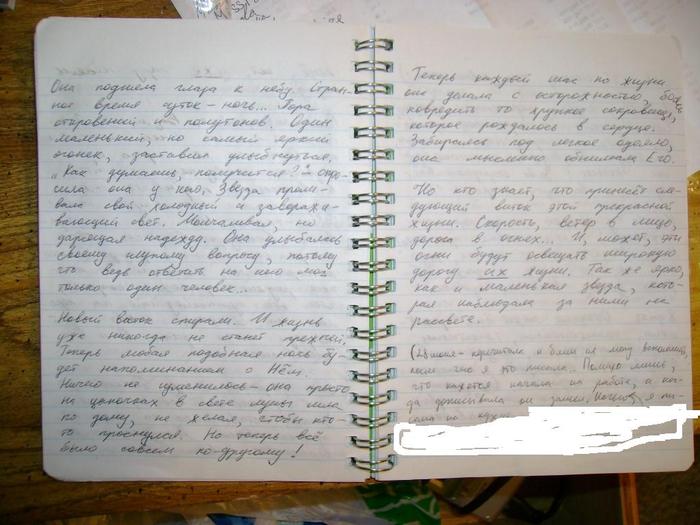 Она подняла глаза к небу. Стран-
ное время суток - ночь... Пора
откровений и полутонов. Один
маленький, но самый яркий
огонек, заставил улыбнуться.
„Как думаешь, получится?" - спро-
сила она у него. Звезда проли-
вала свой холодный и заворажи-
вающий свет. Молчаливая, но
дарящая надежду. Она улыбалась
своему глупому вопросу, потому
что ведь ответить на него мог
только один человек...
Новый виток спирали. И жизнь
уже никогда не станет прежней.
Теперь любая подобная ночь бу-
дет напоминанием о Нём.
Ничего не изменилось - она просто
на цыпочках в свете луны шла
по дому, не желая, чтобы кто-
то проснулся. Но теперь всё
было совсем по-другому!
Теперь каждый шаг по жизни
она делала с осторожностью, боясь
повредить то хрупкое сокровище,
которое рождалось в сердце.
Забираясь под легкое одеяло,
она мысленно обнимала Его.
Но кто знает, что принесёт сле-
дующий виток этой прекрасной
жизни. Скорость, ветер в лицо,
дорога в огнях... И, может, эти
огни будут освещать широкую
дорогу их жизни. Так же ярко,
как и маленькая звезда, кото-
рая наблюдала за ними на
рассвете.
(28 июня - перечитала и блин не могу вспомнить,
кому это я писала... Помню лишь,
что кажется начала на работе, а ког-
да дописывала он заснул.